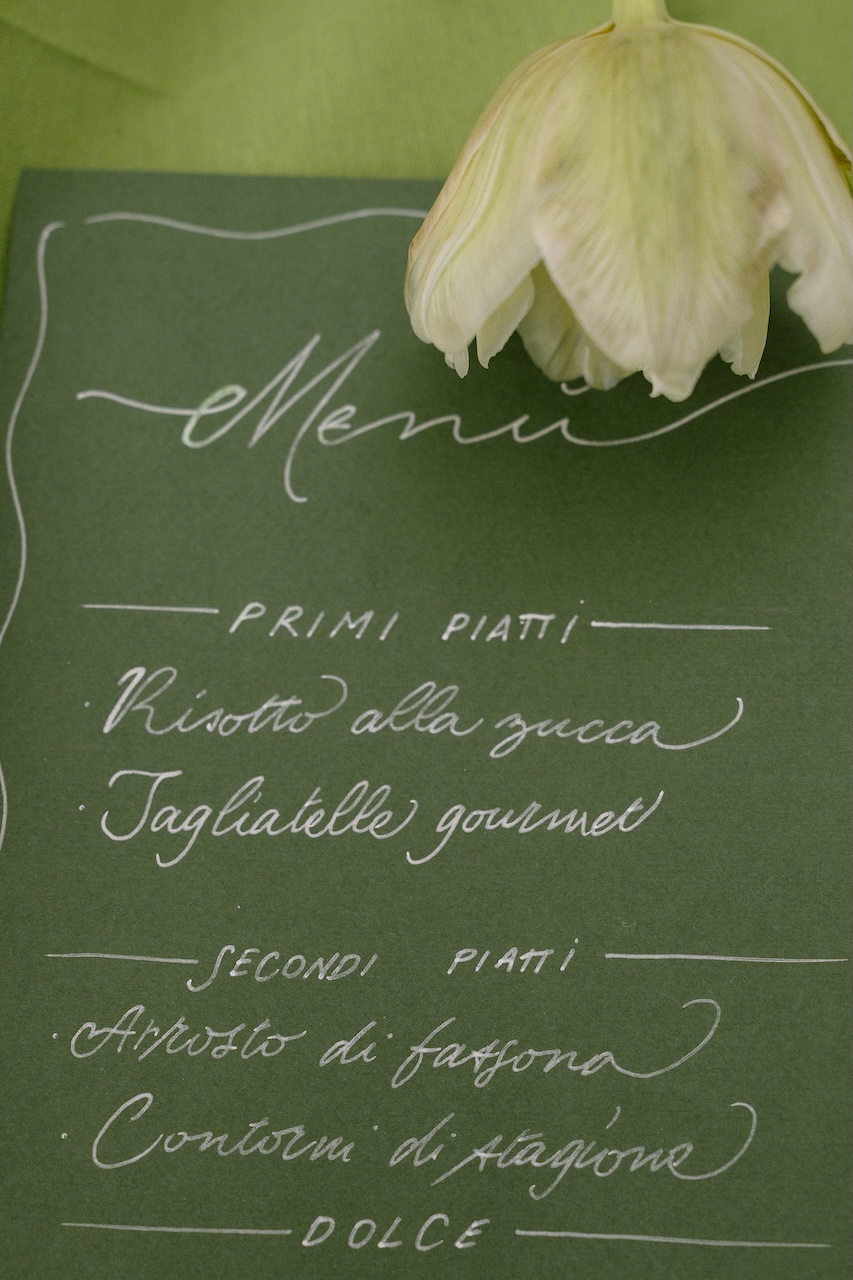 Menù
PRIMI PIATTI
· Risotto alla zucca
· Tagliatelle gourmet
SECONDI PIATTI
· Arrosto di fassona
· Contorni di stagione
DOLCE